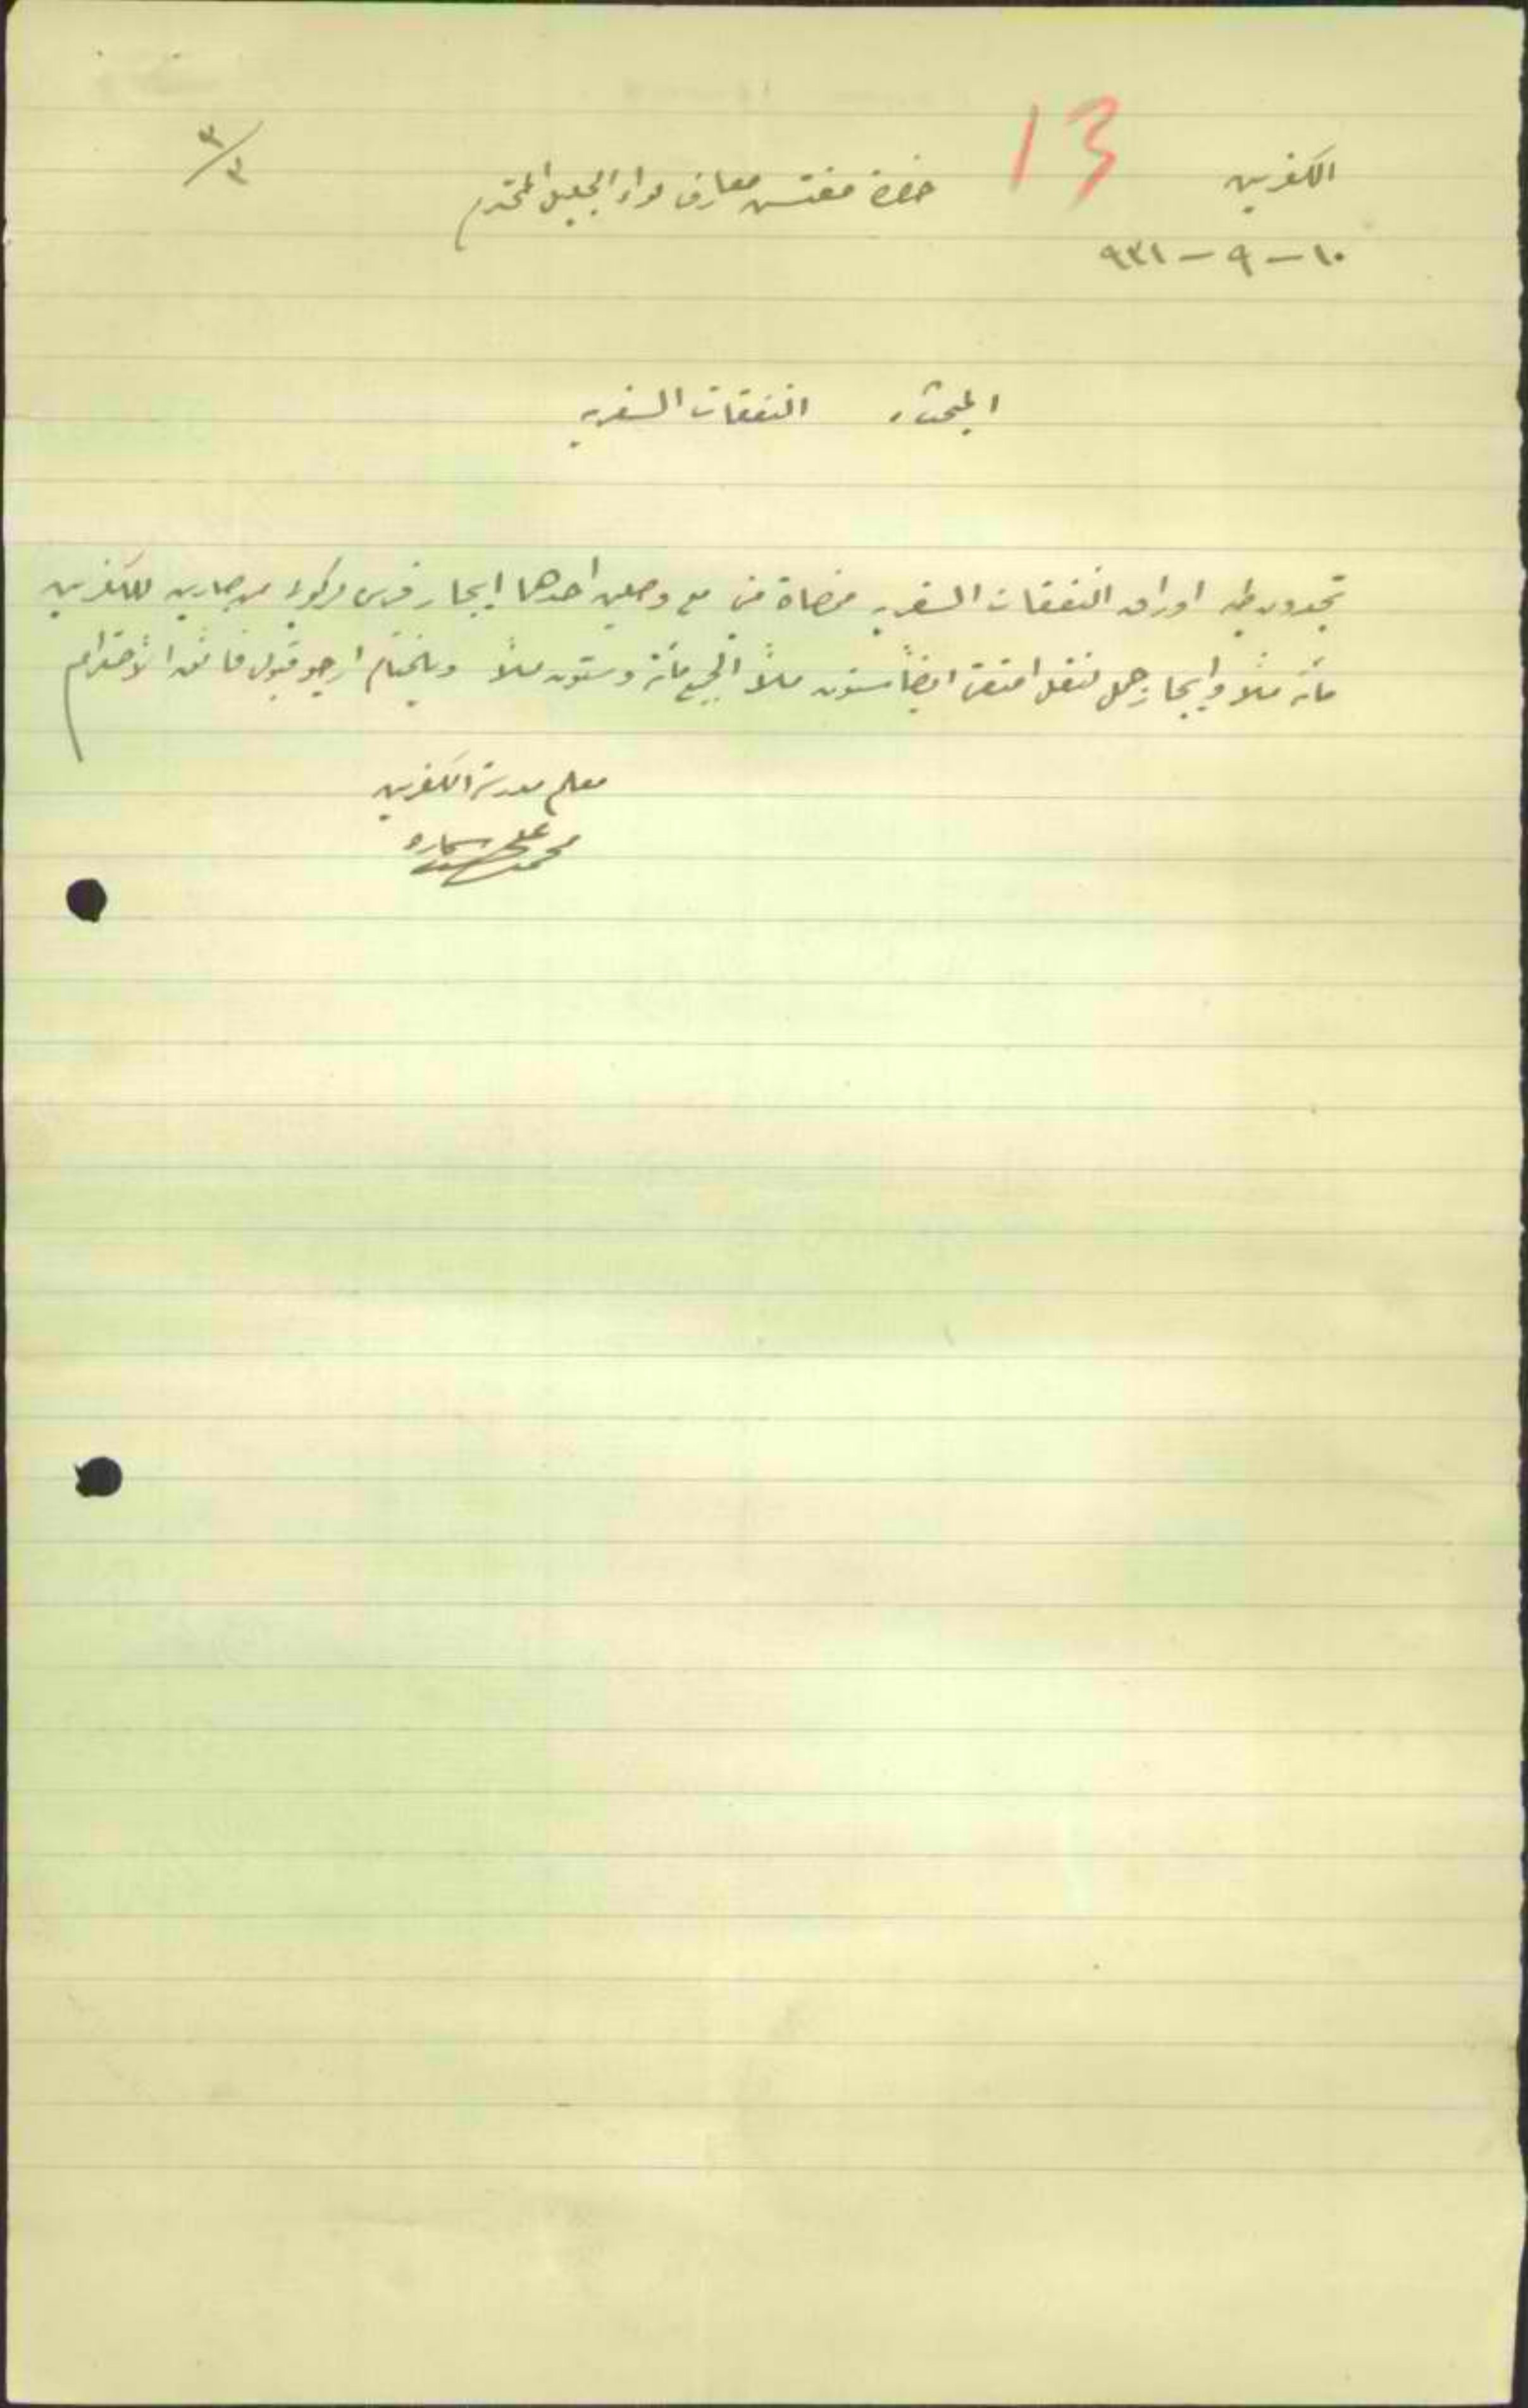 الكفرين
13
٣/٣
حضرة مفتش معارف لواء الجليل المحترم
١٠ - ٩ - ٩٣١
المبحث، النفقات السفريه
تجدون طيه اوراق النفقات السفريه ممضاة مني مع وصلين احدهما ايجار فرس لركوبي من صبارين للكفرين
مائة ملاً وايجار جمل لنقل امتعتي ايضاً ستون ملاً الجميع مائة وستون ملاً وبالختام ارجو قبول فائق الأحترام
معلم مدرسة الكفرين
محمد علي